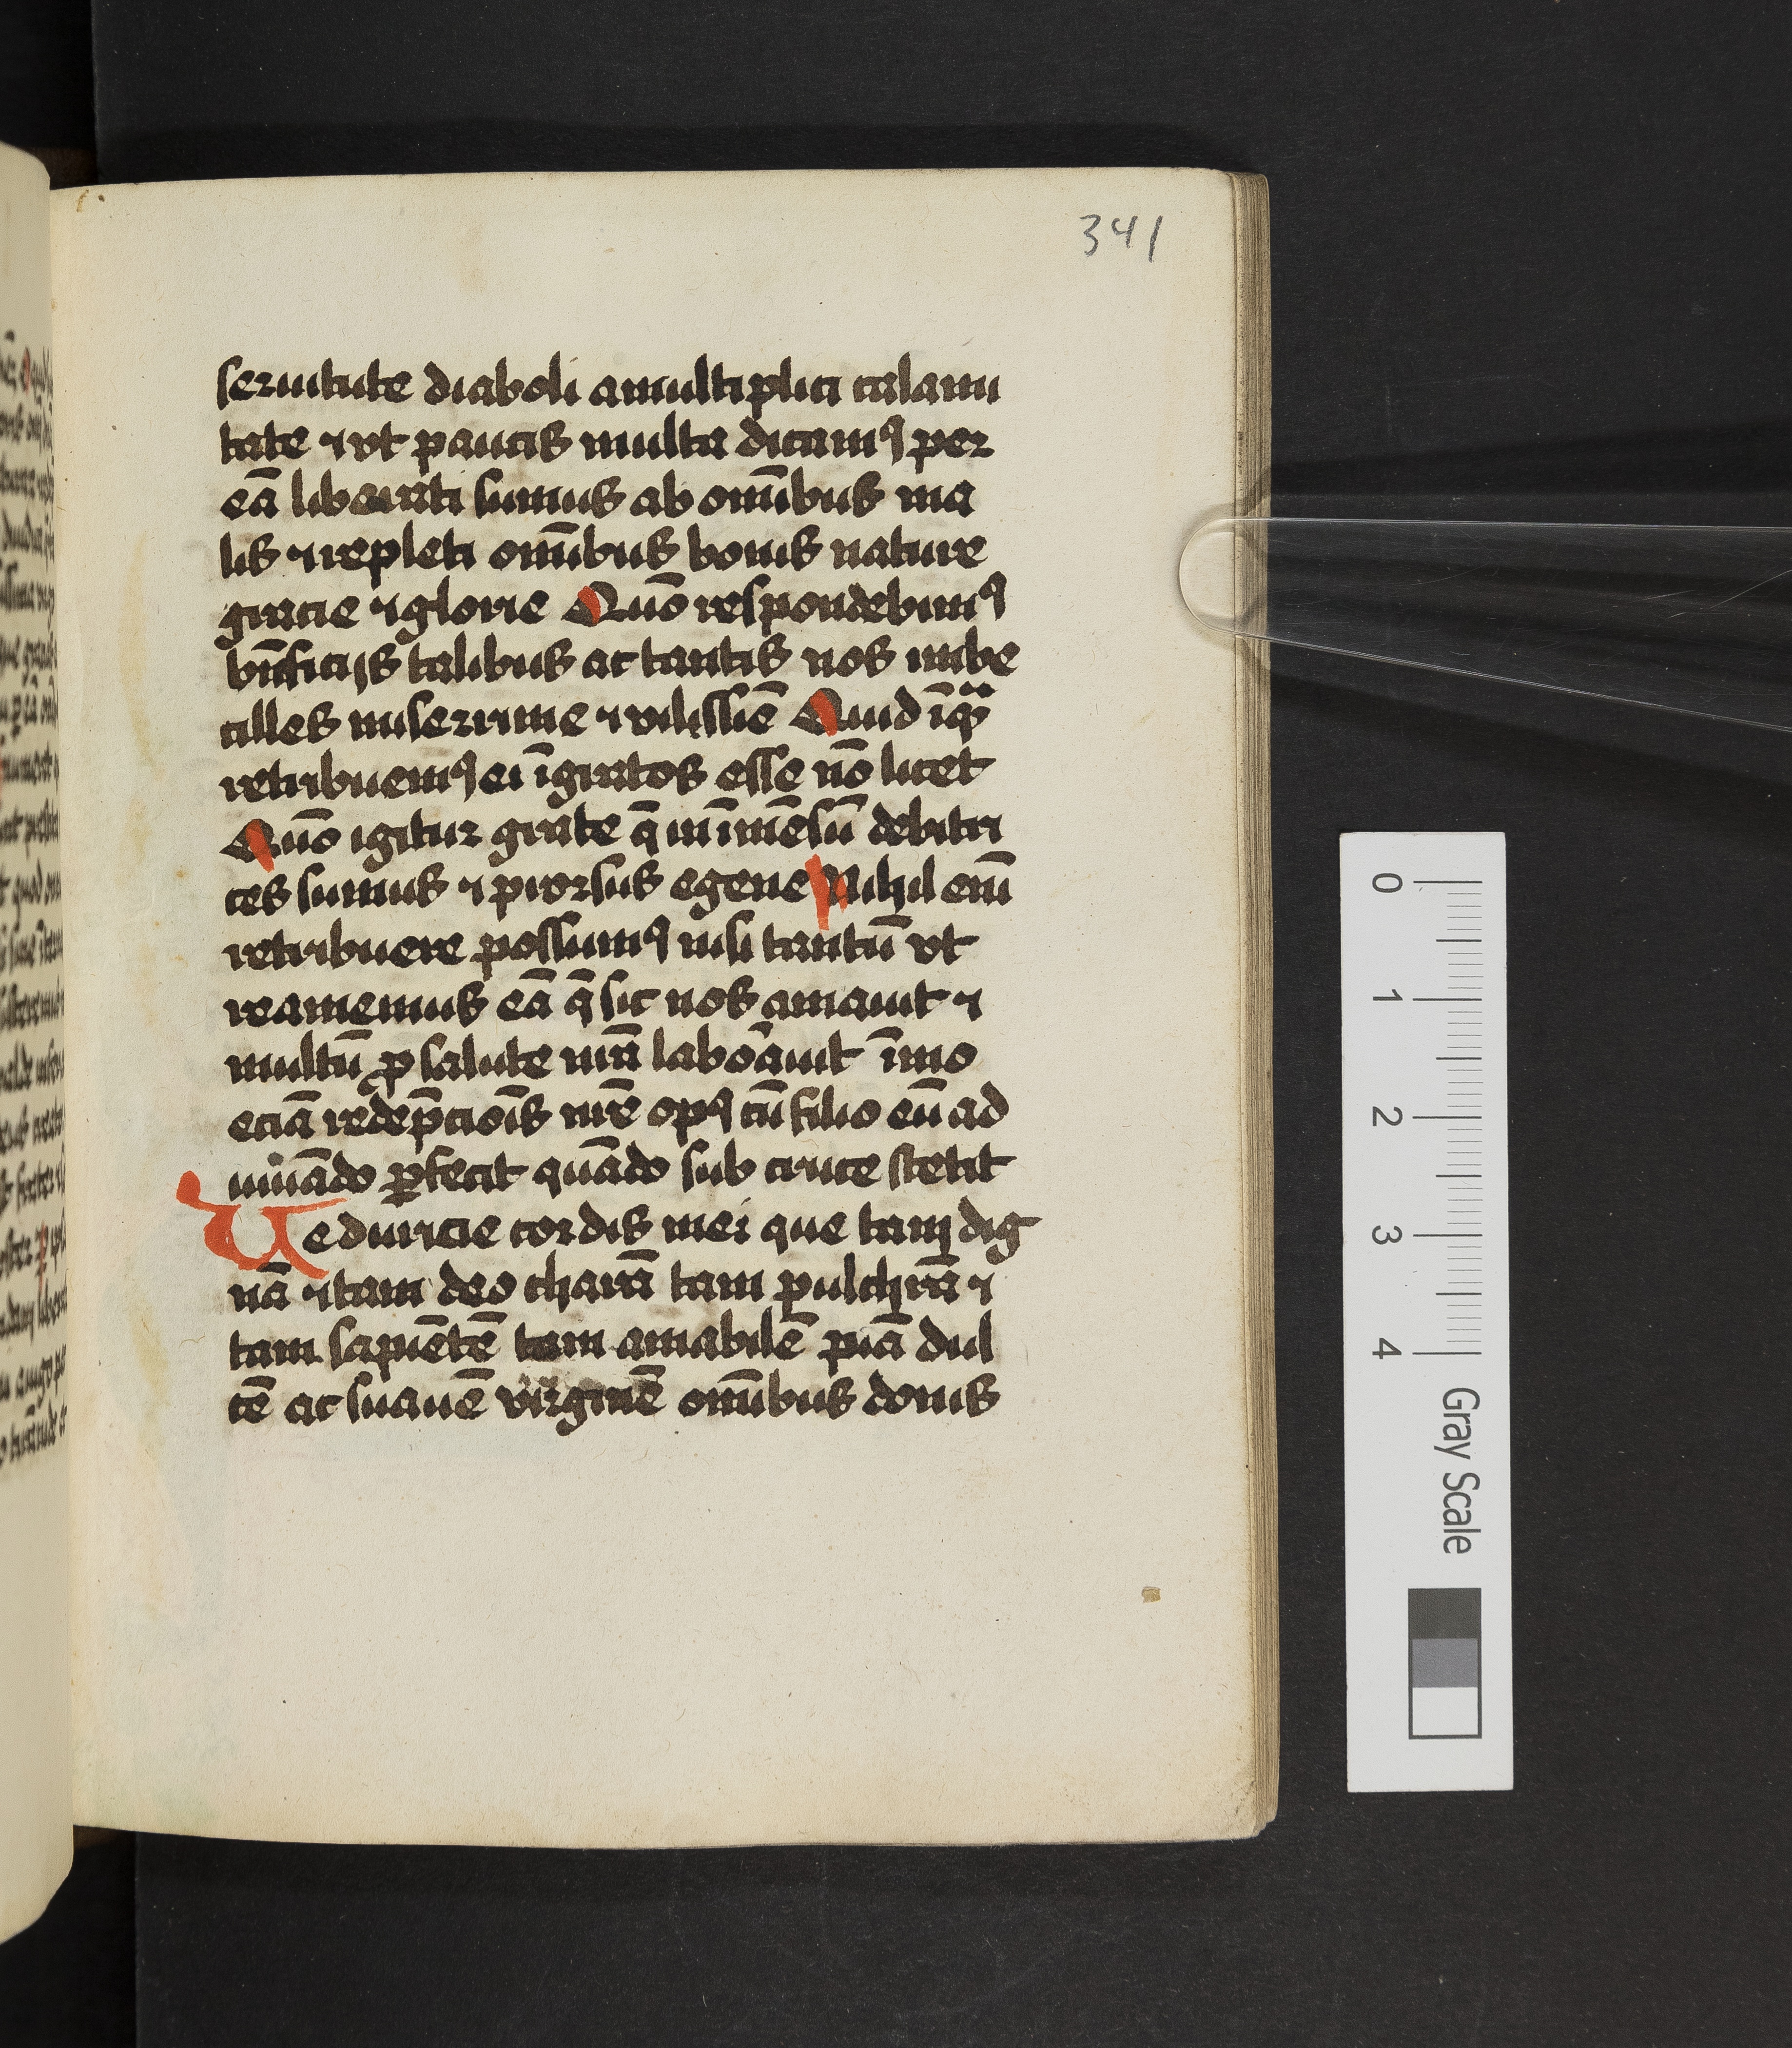 341
seruitute diaboli a multiplici calami
tate ⁊ vt paucis multa dicamꝰ per
eā liberati sumus ab om̄ibus ma
lis ⁊ repleti om̄ibus bonis nature
gracie ⁊ glorie Quō respondebimꝰ
bn̄ficijs talibus ac tantis nos imbe
cilles miserrime ⁊ vilissīe Quid īqͣ
retribuemꝰ ei īgratos esse nō licet
Quō igitur grate q̄ in īmēsū debitri
ces sumus ⁊ prorsus egene Nihil eni̅
retribuere possumꝰ nisi tantū vt
reamemus eā q̄ sic nos amauit ⁊
multū ꝓ salute nr̄a laborauit īmo
eciā redēpcioīs nr̄e opꝰ cū filio eū ad
iuuādo ꝑfecit quādo sub cruce stetit
Ue duricie cordis mei que tam dig
nā ⁊ tam deo charā tam pulchrā ⁊
tam sapiētē tam amabilē piā dul
cē ac suauē virginē om̄ibus donis
0
1
2
3
4
Gray Scale